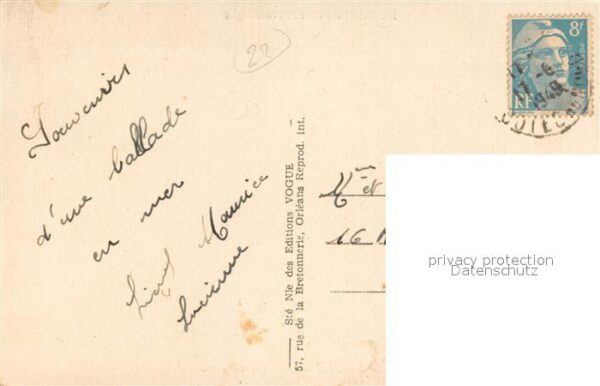 22
Souvenirs
d'une ballade
en mer
Maurice
Lucienne
Sté Nle des Editions VOGUE
57, rue de la Bretonnerie, Orléans Reprod. int.
8f
RF
17 -8
1949
Mme et
16
privacy protection
Datenschutz